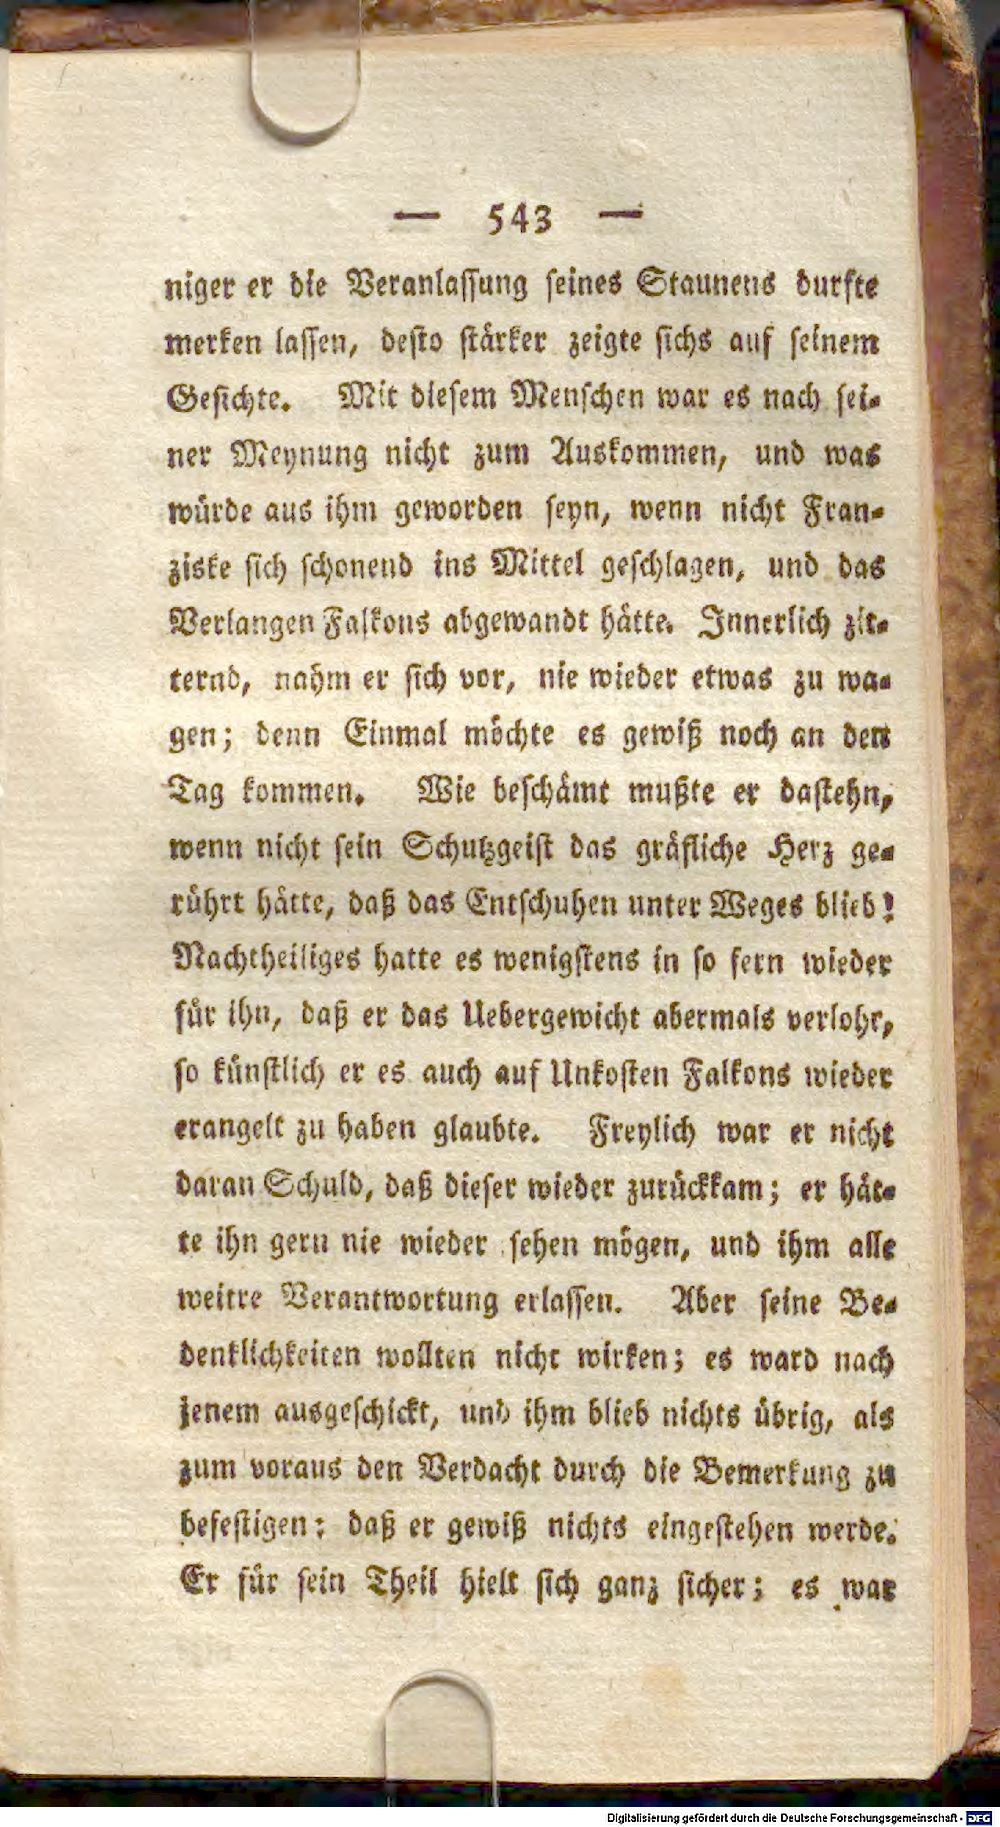 — 543 —
niger er die Veranlassung seines Staunens durfte
merken lassen, desto stärker zeigte sichs auf seinem
Gesichte. Mit diesem Menschen war es nach sei-
ner Meynung nicht zum Auskommen, und was
würde aus ihm geworden seyn, wenn nicht Fran-
ziske sich schonend ins Mittel geschlagen, und das
Verlangen Falkons abgewandt hätte. Innerlich zit-
ternd, nahm er sich vor, nie wieder etwas zu wa-
gen; denn Einmal möchte es gewiß noch an den
Tag kommen. Wie beschämt mußte er dastehn,
wenn nicht sein Schutzgeist das gräfliche Herz ge-
rührt hätte, daß das Entschuhen unter Weges blieb!
Nachtheiliges hatte es wenigstens in so fern wieder
für ihn, daß er das Uebergewicht abermals verlohr,
so künstlich er es auch auf Unkosten Falkons wieder
erangelt zu haben glaubte. Freylich war er nicht
daran Schuld, daß dieser wieder zurückkam; er hät-
te ihn gern nie wieder sehen mögen, und ihm alle
weitre Verantwortung erlassen. Aber seine Be-
denklichkeiten wollten nicht wirken; es ward nach
jenem ausgeschickt, und ihm blieb nichts übrig, als
zum voraus den Verdacht durch die Bemerkung zu
befestigen: daß er gewiß nichts eingestehen werde.
Er für sein Theil hielt sich ganz sicher; es war
Digitalisierung gefördert durch die Deutsche Forschungsgemeinschaft - DFG